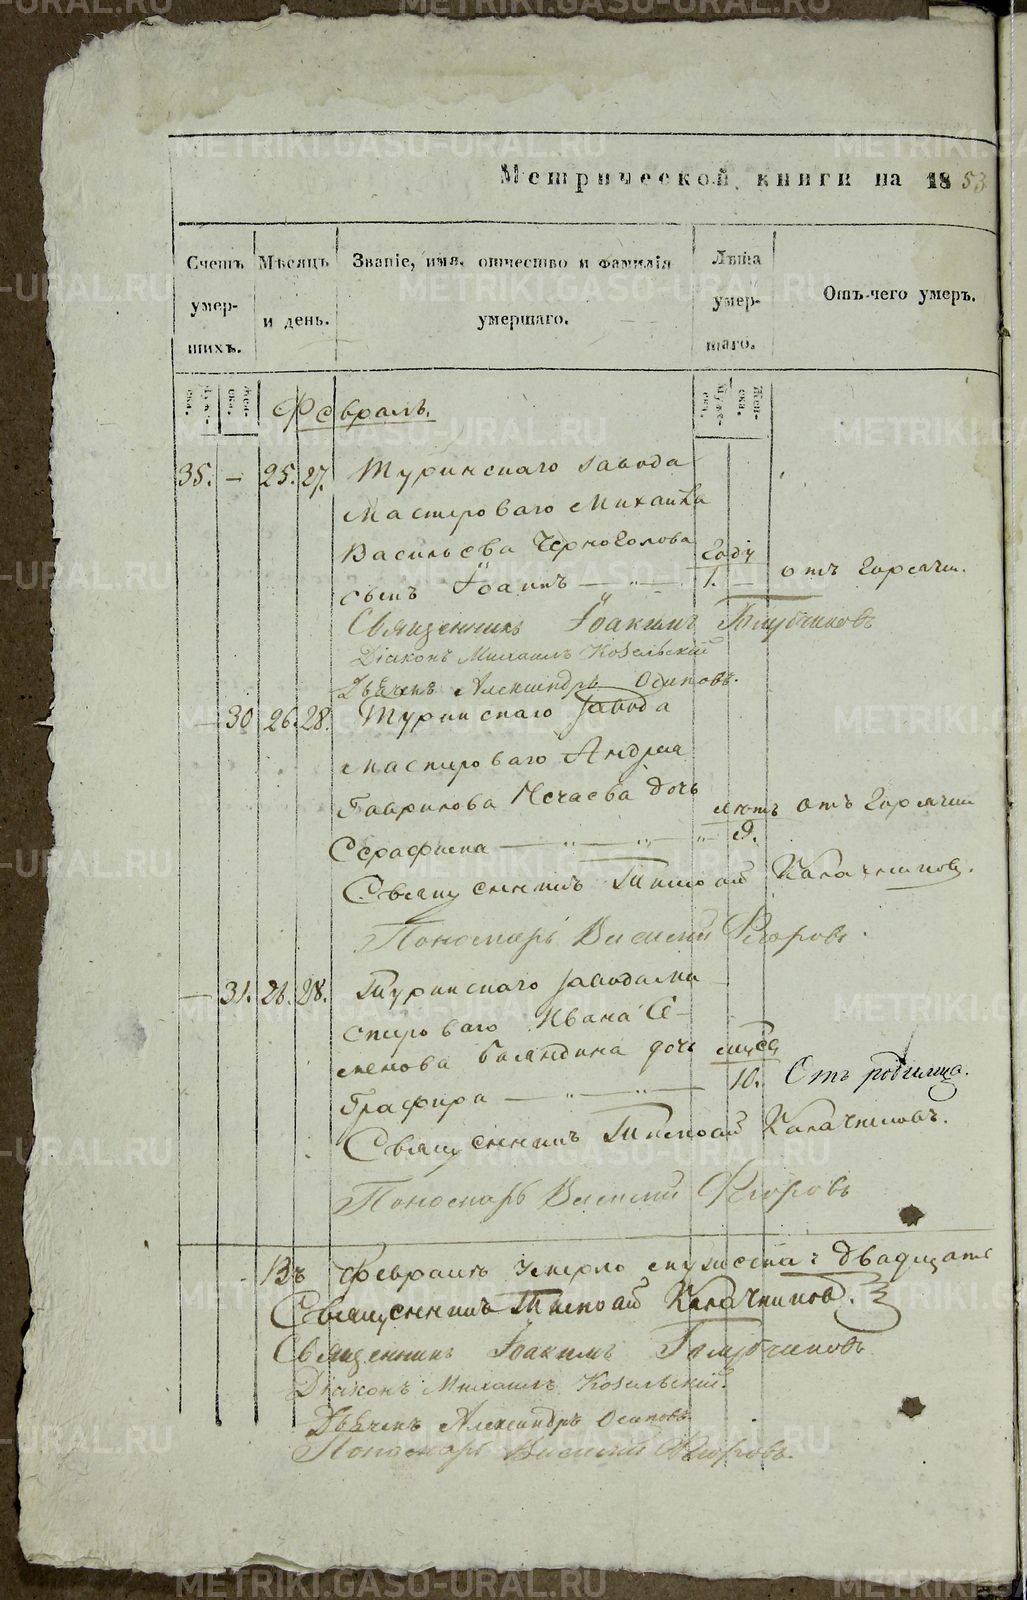 Метрической книги на 1853
Счетъ умер-шихъ.
Мѣсяцъ и день.
Званіе, имя, отчество и фамилія умершаго.
Лѣта умер-шаго.
Отъ чего умеръ.
Февраль.
35. — 25. 27. Туринскаго завода
мастероваго Михаила
Васильева Черноголова
сынъ Іоаннъ — годъ 1. отъ горячки.
Священникъ Іоакимъ Голубчиковъ
Діаконъ Михаилъ Козельскій
Дьячекъ Александръ Осиповъ.
— 30 26. 28. Туринскаго завода
мастероваго Андрея
Гаврилова Нечаева дочь
Серафима — лѣтъ 9. отъ горячки
Священникъ Тимофей Калачниковъ.
Пономарь Василій Флоровъ.
— 31. 26. 28. Туринскаго завода ма-
стероваго Ивана Се-
менова Баландина дочь
Глафира — мѣсяц 10. Отъ родимца.
Священникъ Тимофей Калачниковъ.
Пономарь Василій Флоровъ
Въ Февралѣ умерло мужеска: двадцать
Священникъ Тимофей Калачниковъ.
Священникъ Іоакимъ Голубчиковъ
Діаконъ Михаилъ Козельскій.
Дьячекъ Александръ Осиповъ
Пономарь Василій Флоровъ.
METRIKI.GASO-URAL.RU